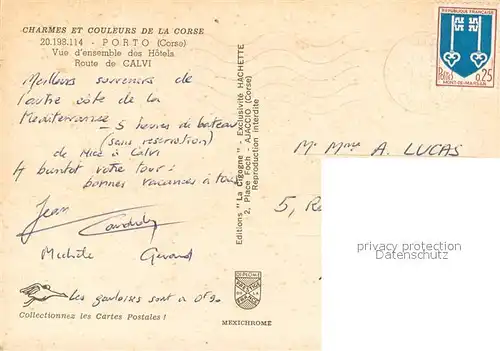 CHARMES ET COULEURS DE LA CORSE
20.198.114 - PORTO (Corse)
Vue d'ensemble des Hôtels
Route de CALVI
Meilleurs souvenirs de
l'autre côté de la
Mediterranee
- 5 heures de bateau
(sans reservation)
de Nice à Calvi
A bientot votre tour :
bonnes vacances à tous
Jean
Michèle Gérard
Les gauloises sont à 0F90
Collectionnez les Cartes Postales !
Editions "La Cigogne" - Exclusivité HACHETTE
2, Place Foch - AJACCIO (Corse)
Reproduction interdite
DIPLOME
PRESTIGE DE LA FRANCE
MEXICHROME
REPUBLIQUE FRANÇAISE
POSTES 0,25
MONT-DE-MARSAN
Mr Mme A. LUCAS
5, R
privacy protection
Datenschutz